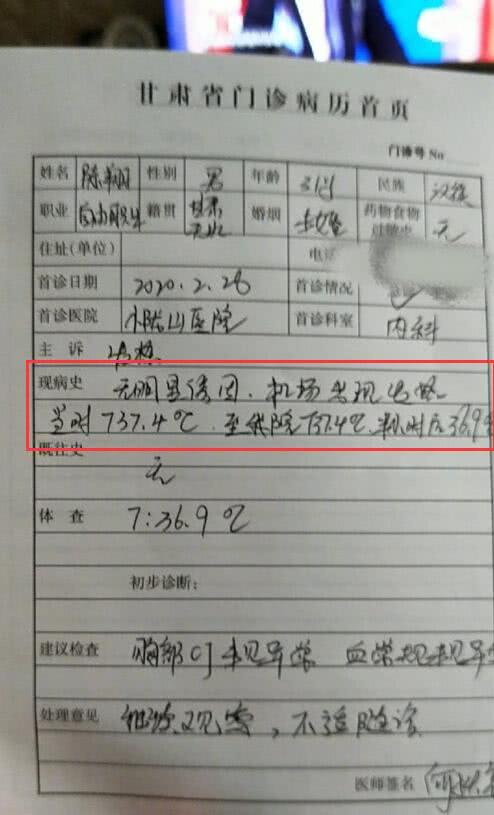 甘肃省门诊病历首页
门诊号 No
姓名 陈翔 性别 男 年龄 31岁 民族 汉族
职业 自由职业 籍贯 甘肃天水 婚姻 未婚 药物食物过敏史 无
住址(单位) 电话
首诊日期 2020.2.26 首诊情况
首诊医院 小陇山医院 首诊科室 内科
主诉 发热
现病史 无明显诱因,机场出现发热
当时T37.4℃,至我院T37.4℃,半小时后36.9℃
既往史
无
体查 T:36.9℃
初步诊断:
建议检查 胸部CT未见异常 血常规未见异常
处理意见 继续观察,不适随诊
医师签名